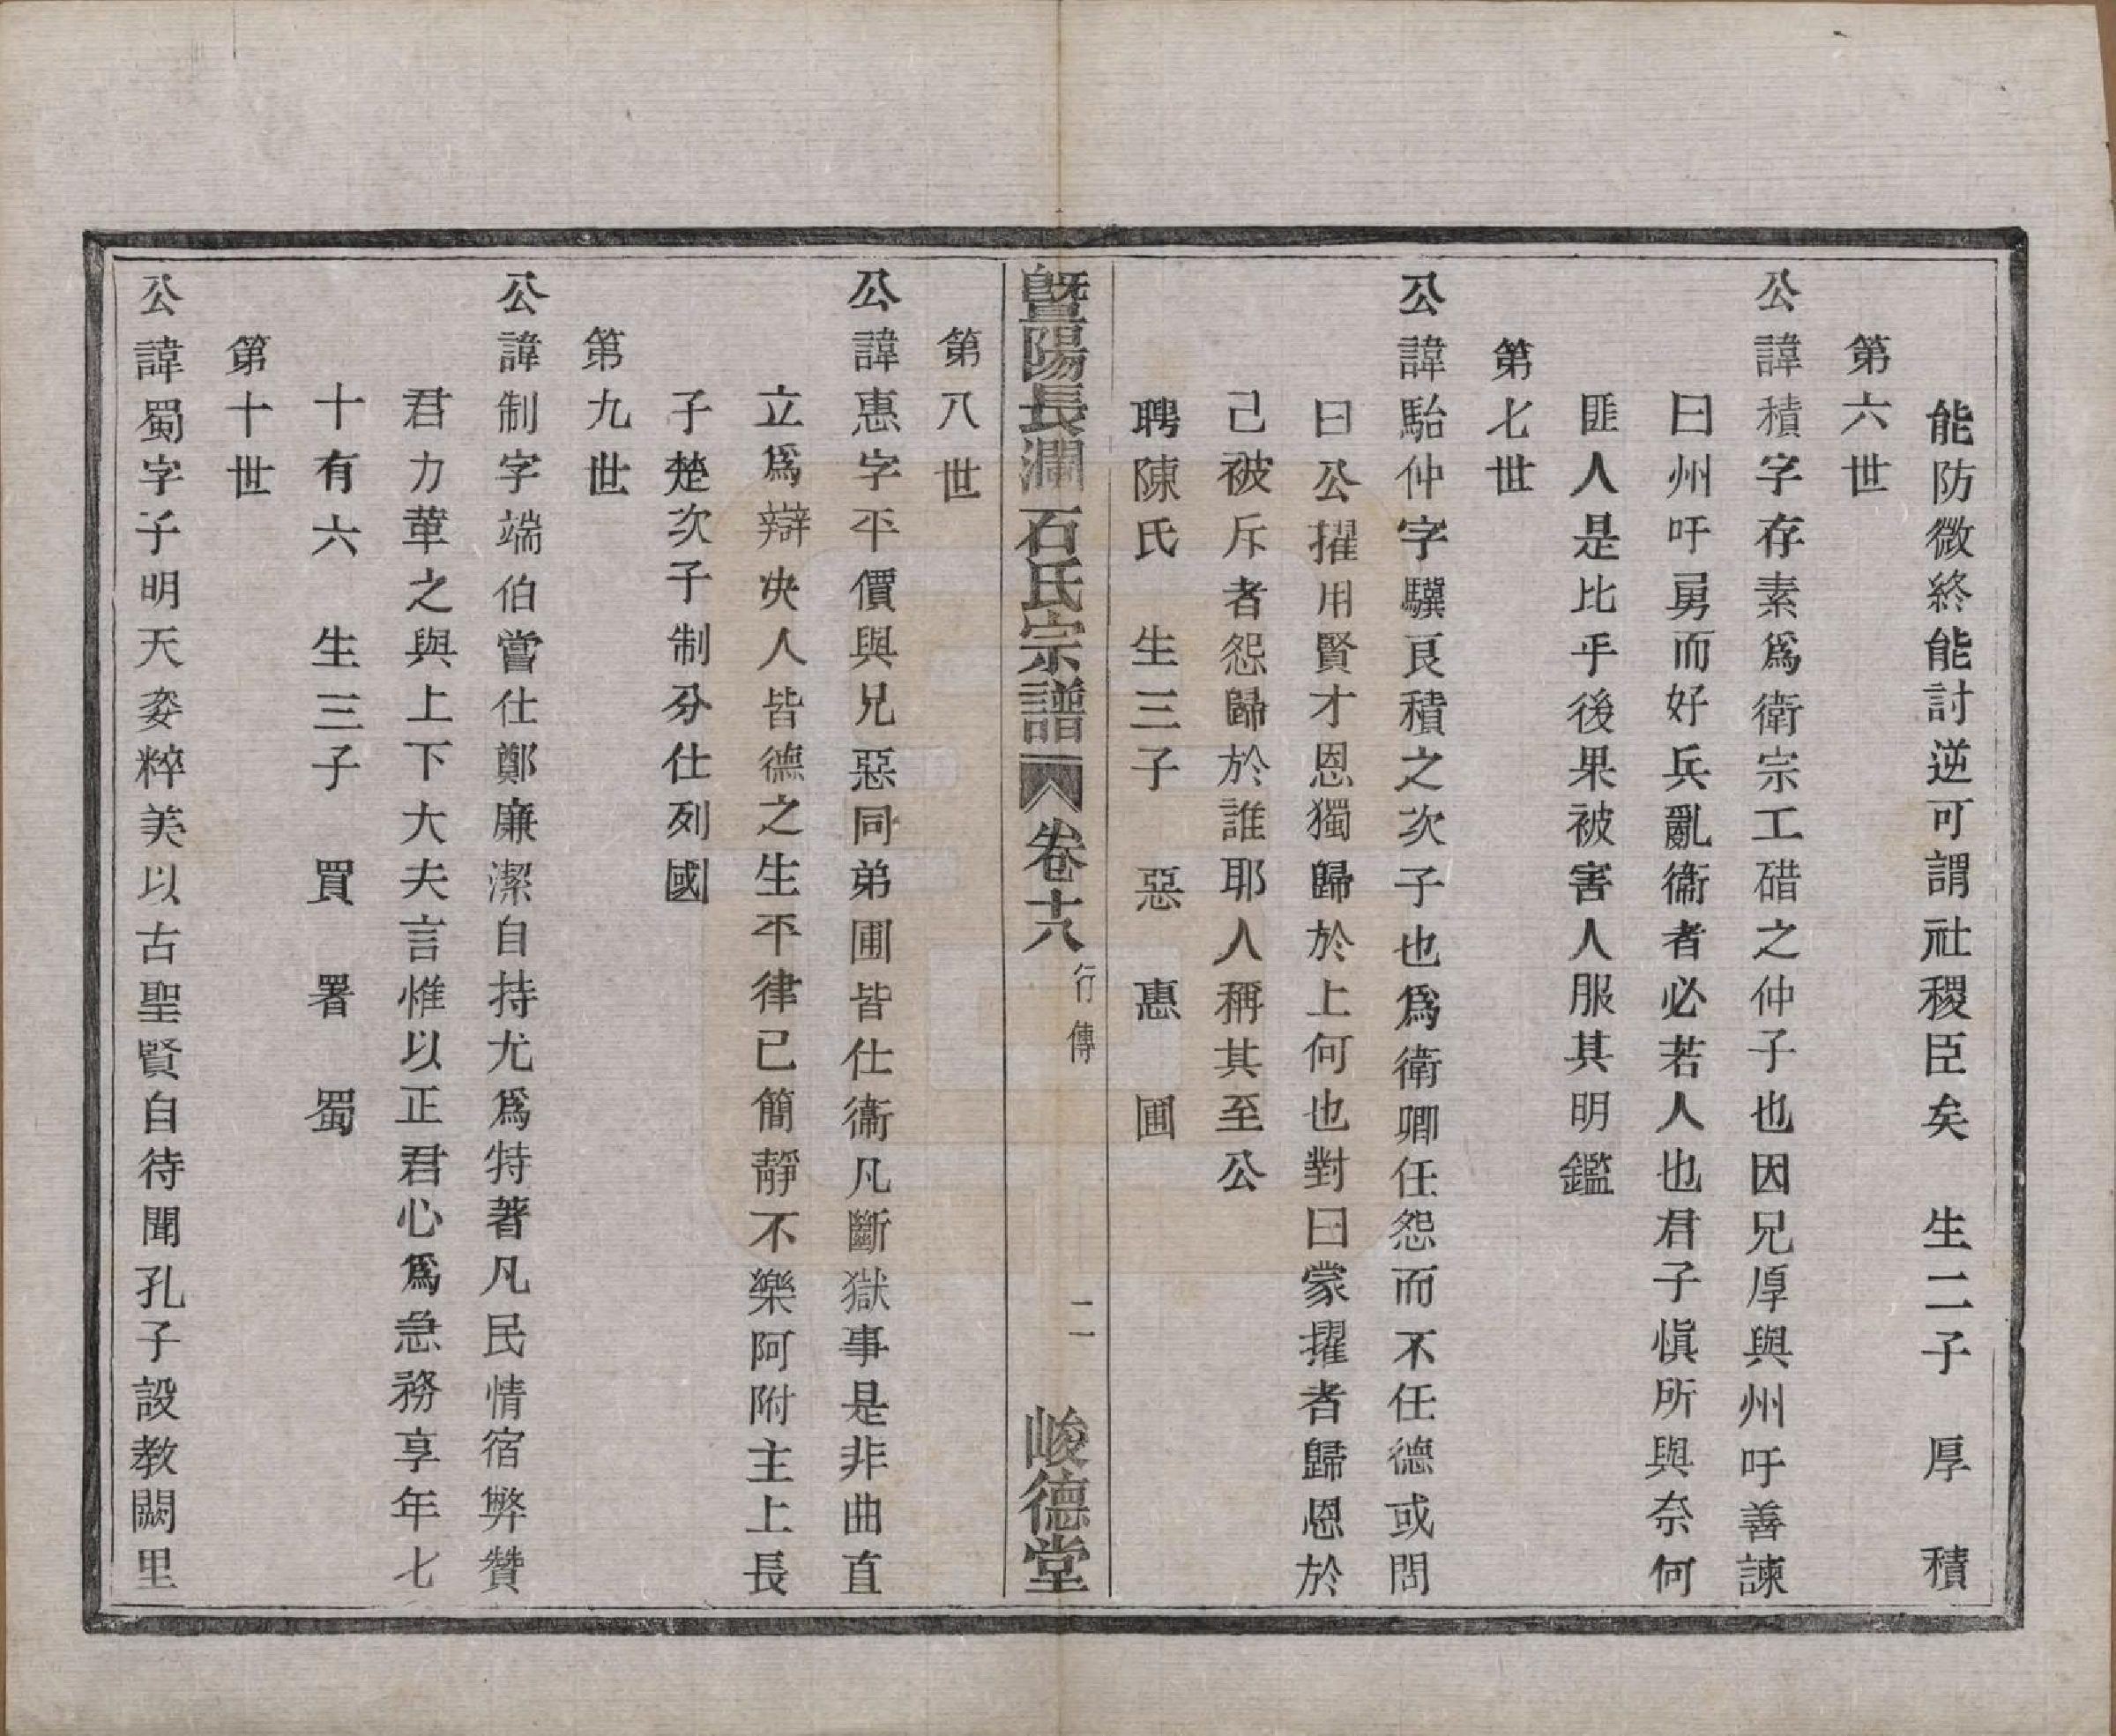 能防微終能討逆可謂社稷臣矣　生二子　厚　積
第六世
公諱積字存素爲衛宗工碏之仲子也因兄厚與州吁善諫
曰州吁勇而好兵亂衞者必若人也君子愼所與奈何
匪人是比乎後果被害人服其明鑑
第七世
公諱駘仲字驥良積之次子也爲衛卿任怨而不任德或問
曰公擢用賢才恩獨歸於上何也對曰蒙擢者歸恩於
己被斥者怨歸於誰耶人稱其至公
聘陳氏　生三子　惡　惠　圃
暨陽長瀾石氏宗譜　卷十八　行傳　二　峻德堂
第八世
公諱惠字平價與兄惡同弟圃皆仕衞凡斷獄事是非曲直
立爲辯决人皆德之生平律已簡靜不樂阿附主上長
子楚次子制分仕列國
第九世
公諱制字端伯嘗仕鄭廉潔自持尤爲特著凡民情宿弊贊
君力革之與上下大夫言惟以正君心爲急務享年七
十有六　生三子　買　署　蜀
第十世
公諱蜀字子明天姿粹美以古聖賢自待聞孔子設教闕里